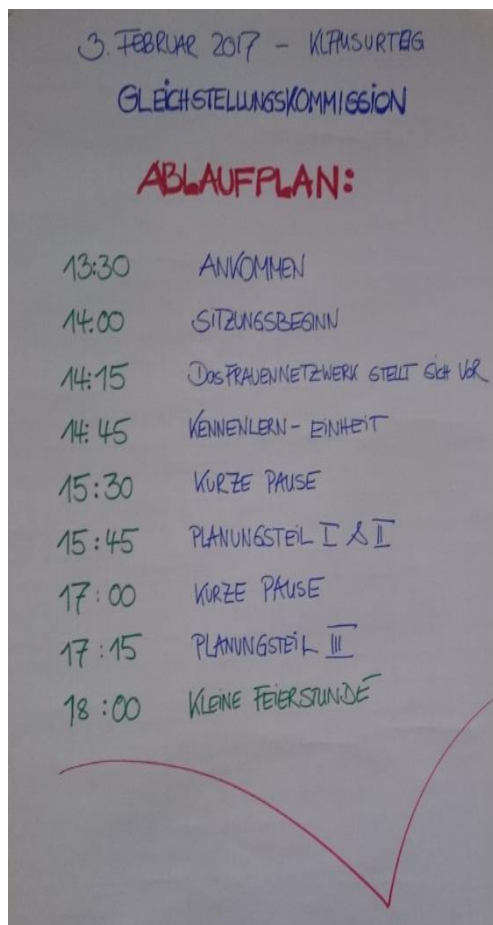 3. FEBRUAR 2017 - KLAUSURTAG
GLEICHSTELLUNGSKOMMISSION
ABLAUFPLAN:
13:30 ANKOMMEN
14:00 SITZUNGSBEGINN
14:15 DAS FRAUENNETZWERK STELLT SICH VOR
14:45 KENNENLERN-EINHEIT
15:30 KURZE PAUSE
15:45 PLANUNGSTEIL I & II
17:00 KURZE PAUSE
17:15 PLANUNGSTEIL III
18:00 KLEINE FEIERSTUNDE